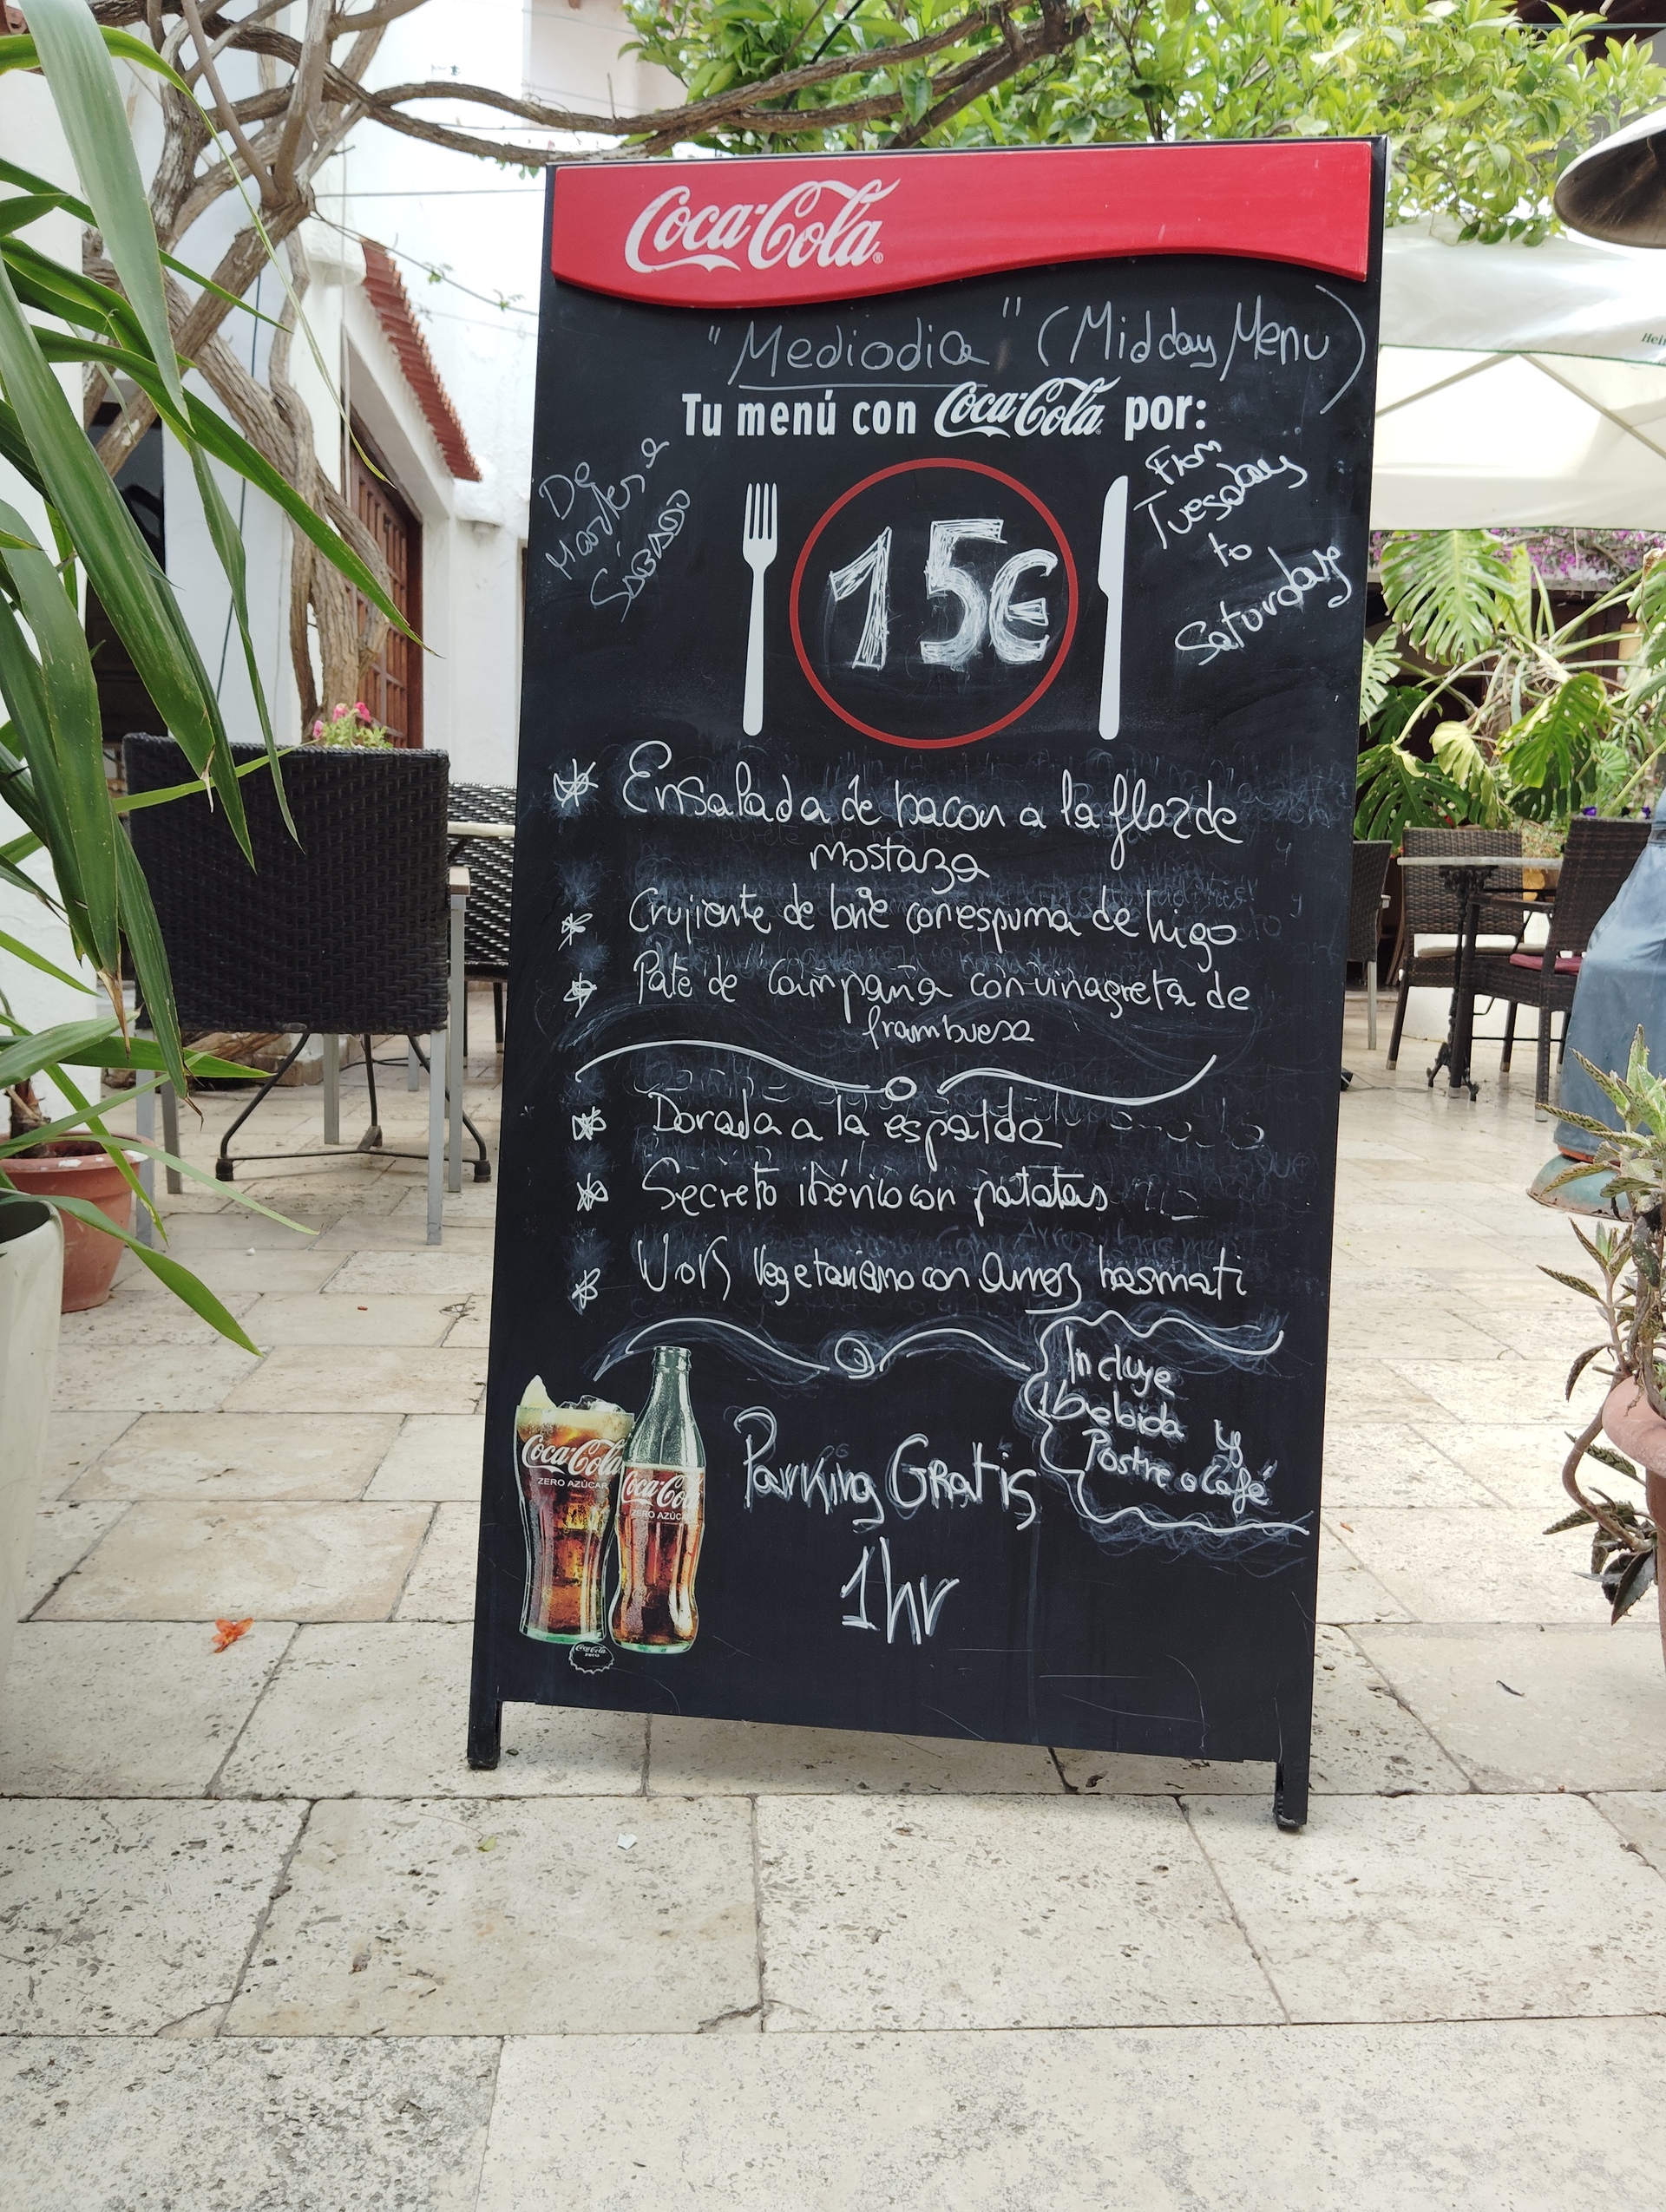 Coca-Cola
"Mediodia" (Midday Menu)
Tu menú con Coca-Cola por:
De
Martes a
SÁBADO
15€
From
Tuesdays
to
Saturdays
Ensalada de bacon a la flor de
mostaza
Crujiente de brie con espuma de higo
Paté de campaña con vinagreta de
frambuesa
Dorada a la espalda
Secreto ibérico con patatas
Wok vegetariano con arroz basmati
Incluye
1 bebida y
Postre o Café
Parking GRatis
1hr
Coca-Cola
ZERO AZÚCAR
Coca-Cola
ZERO AZÚCAR
Coca-Cola
zero
Hei